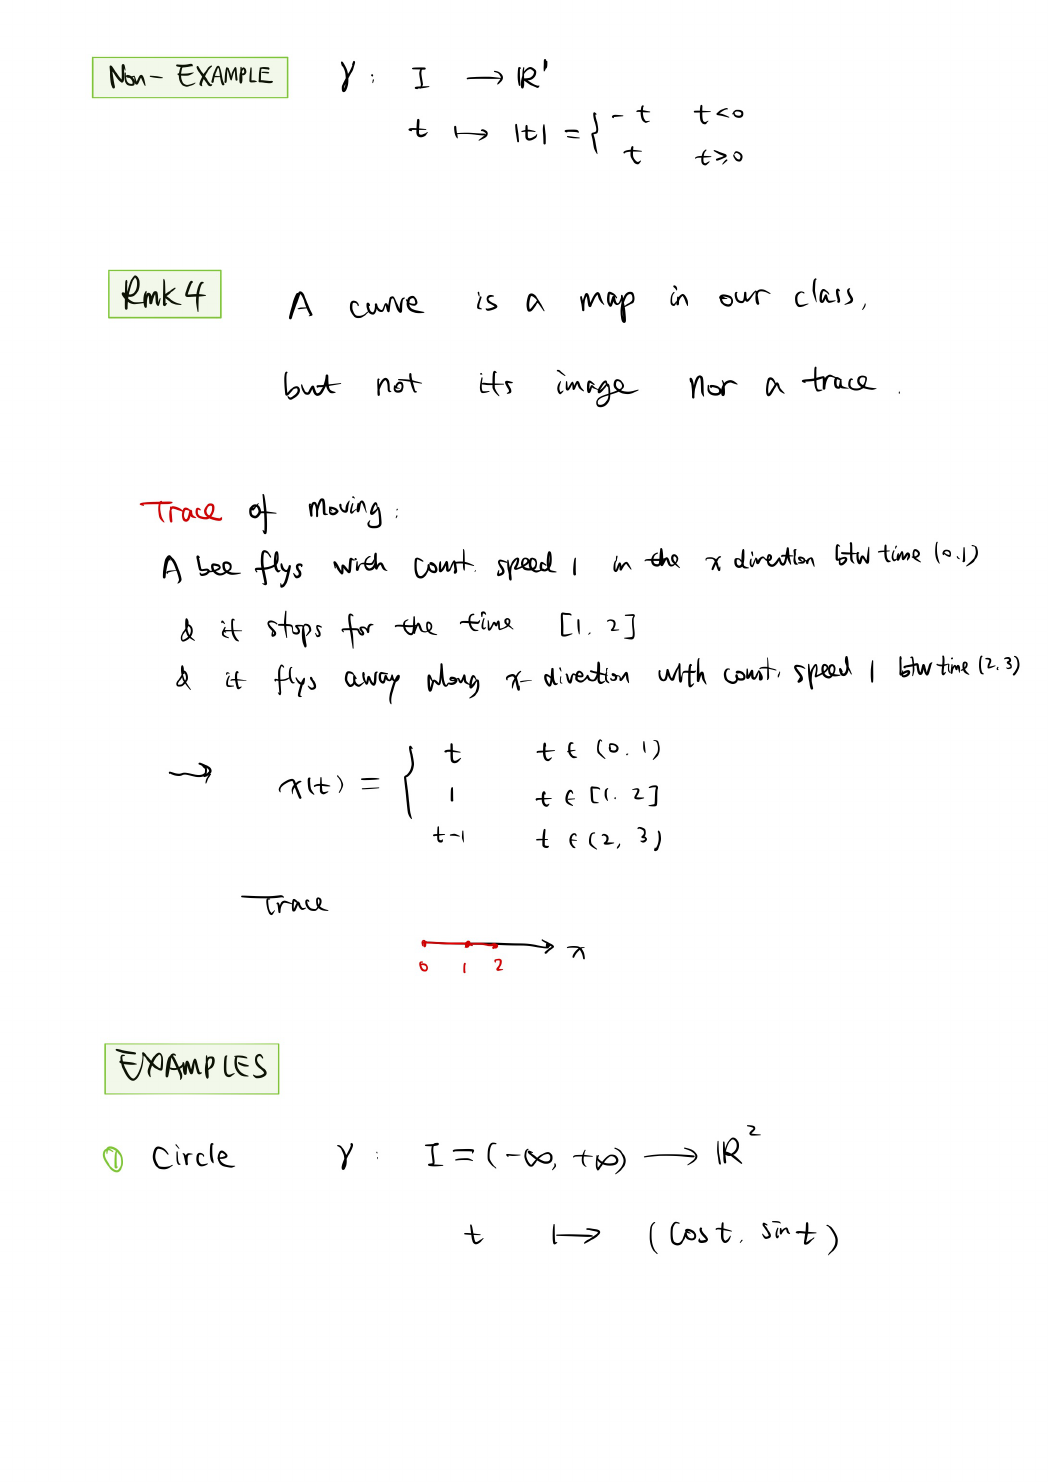 Non- EXAMPLE γ : I → ℝ¹
t ↦ |t| = { -t t<0
t t≥0
Rmk 4 A curve is a map in our class,
but not its image nor a trace.
Trace of moving:
A bee flys with const. speed 1 in the x direction btw time (0.1)
& it stops for the time [1. 2]
& it flys away along x-direction with const. speed 1 btw time (2.3)
→ x(t) = { t t ∈ (0. 1)
1 t ∈ [1. 2]
t-1 t ∈ (2, 3)
Trace
x
0 1 2
EXAMPLES
① Circle γ : I = (-∞, +∞) → ℝ²
t ↦ (cos t, sin t)